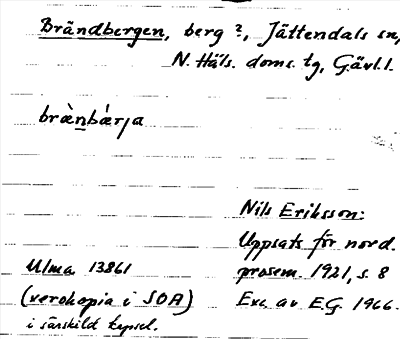 Brändbergen, berg?, Jättendals sn,
N. Häls. doms. tg, Gävl. l.
brànbárja
Nils Eriksson:
Uppsats för nord.
Ulma 13861
prosem. 1921, s. 8
(xerokopia i SOA)
Exc. av E.G. 1966.
i särskild kapsel.